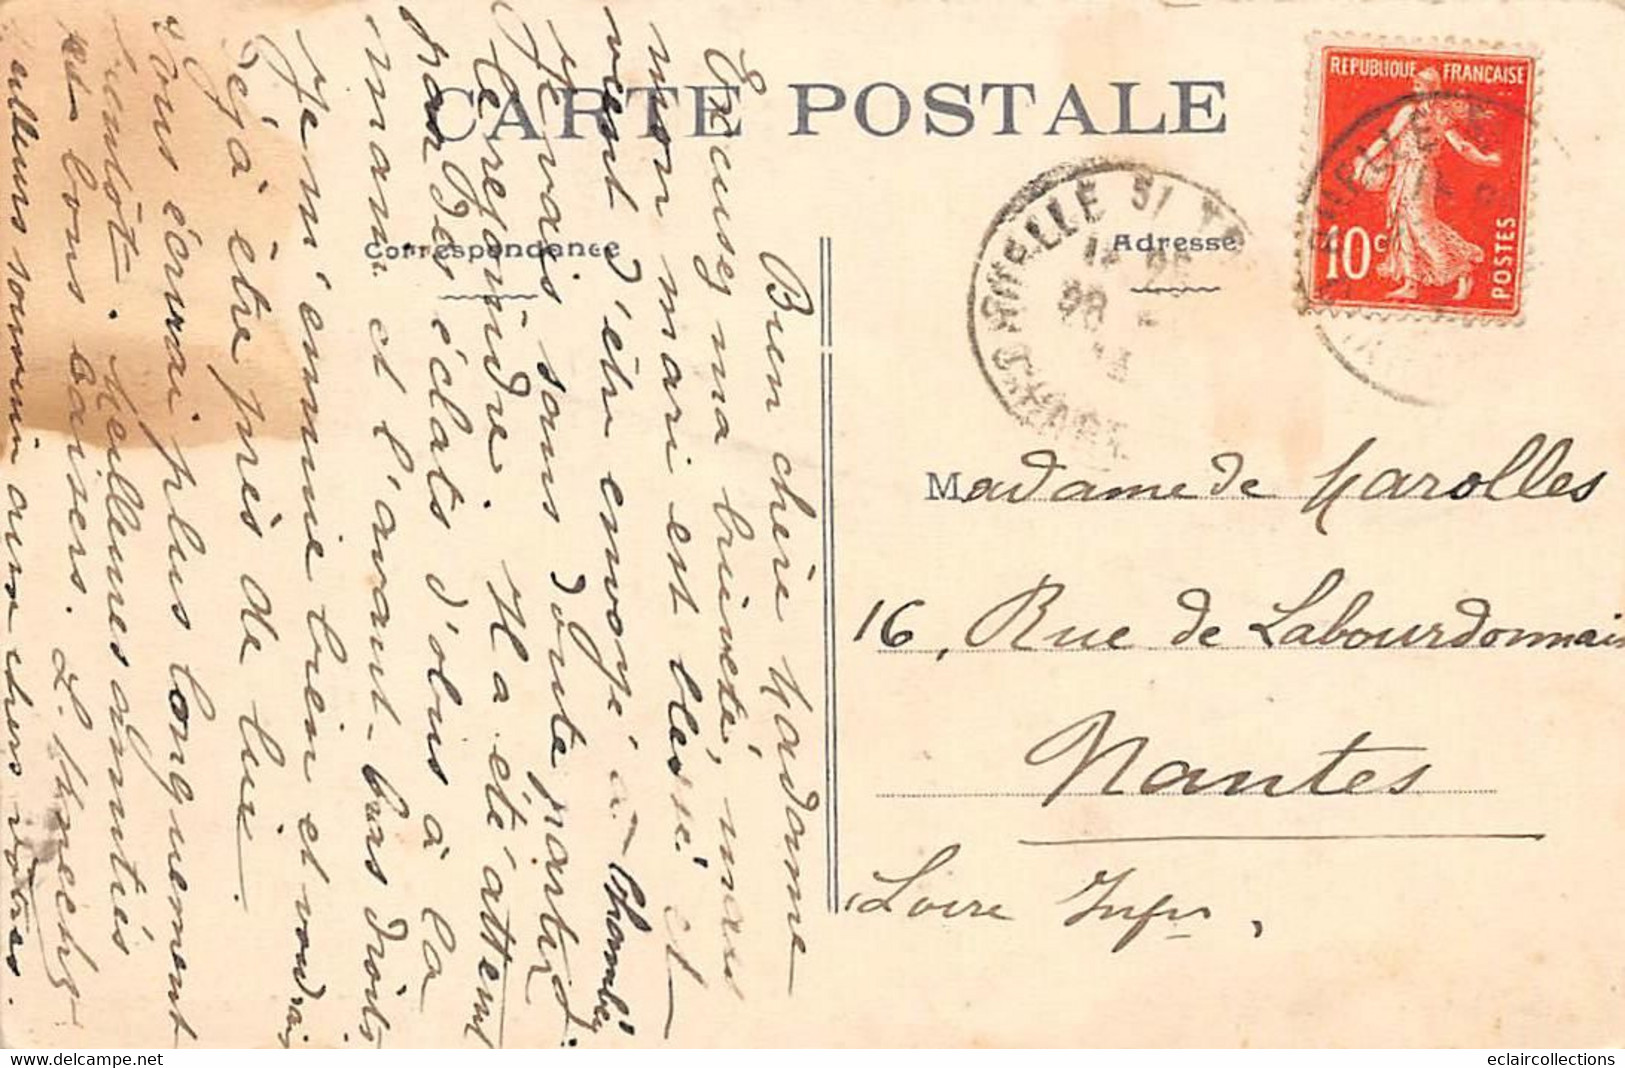 CARTE POSTALE
Correspondance
Adresse
REPUBLIQUE FRANÇAISE
10c
POSTES
Bien chère Madame
Excusez ma brièveté, mais
mon mari est blessé et
vient d'être envoyé à Chambéry
Je vais sans doute partir
le rejoindre. Il a été atteint
par des éclats d'obus à la
main et l'avant-bras droits
Je m'ennuie bien et voudrais
déjà être près de lui.
Vous écrirai plus longuement
bientôt. Meilleures amitiés
et bons baisers. L.
Meilleurs souvenirs aux chers vôtres.
Madame de Marolles
16, Rue de Labourdonnais
Nantes
Loire Infre,
eclaircollections